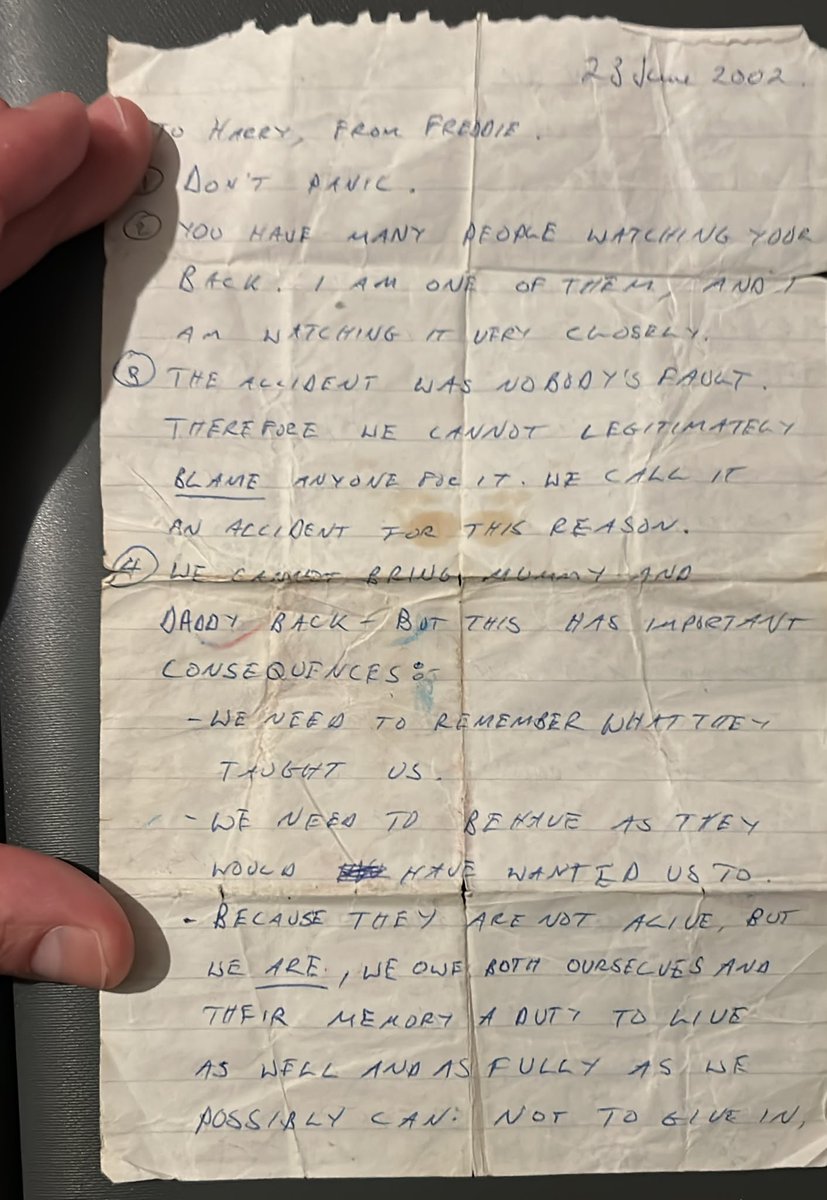 23 June 2002.
TO HARRY, FROM FREDDIE.
① DON'T PANIC.
② YOU HAVE MANY PEOPLE WATCHING YOUR
BACK. I AM ONE OF THEM, AND I
AM WATCHING IT VERY CLOSELY.
③ THE ACCIDENT WAS NOBODY'S FAULT.
THEREFORE WE CANNOT LEGITIMATELY
BLAME ANYONE FOR IT. WE CALL IT
AN ACCIDENT FOR THIS REASON.
④ WE CANNOT BRING MUMMY AND
DADDY BACK - BUT THIS HAS IMPORTANT
CONSEQUENCES:-
- WE NEED TO REMEMBER WHAT THEY
TAUGHT US.
- WE NEED TO BEHAVE AS THEY
WOULD HAVE WANTED US TO.
- BECAUSE THEY ARE NOT ALIVE, BUT
WE ARE, WE OWE BOTH OURSELVES AND
THEIR MEMORY A DUTY TO LIVE
AS WELL AND AS FULLY AS WE
POSSIBLY CAN: NOT TO GIVE IN,